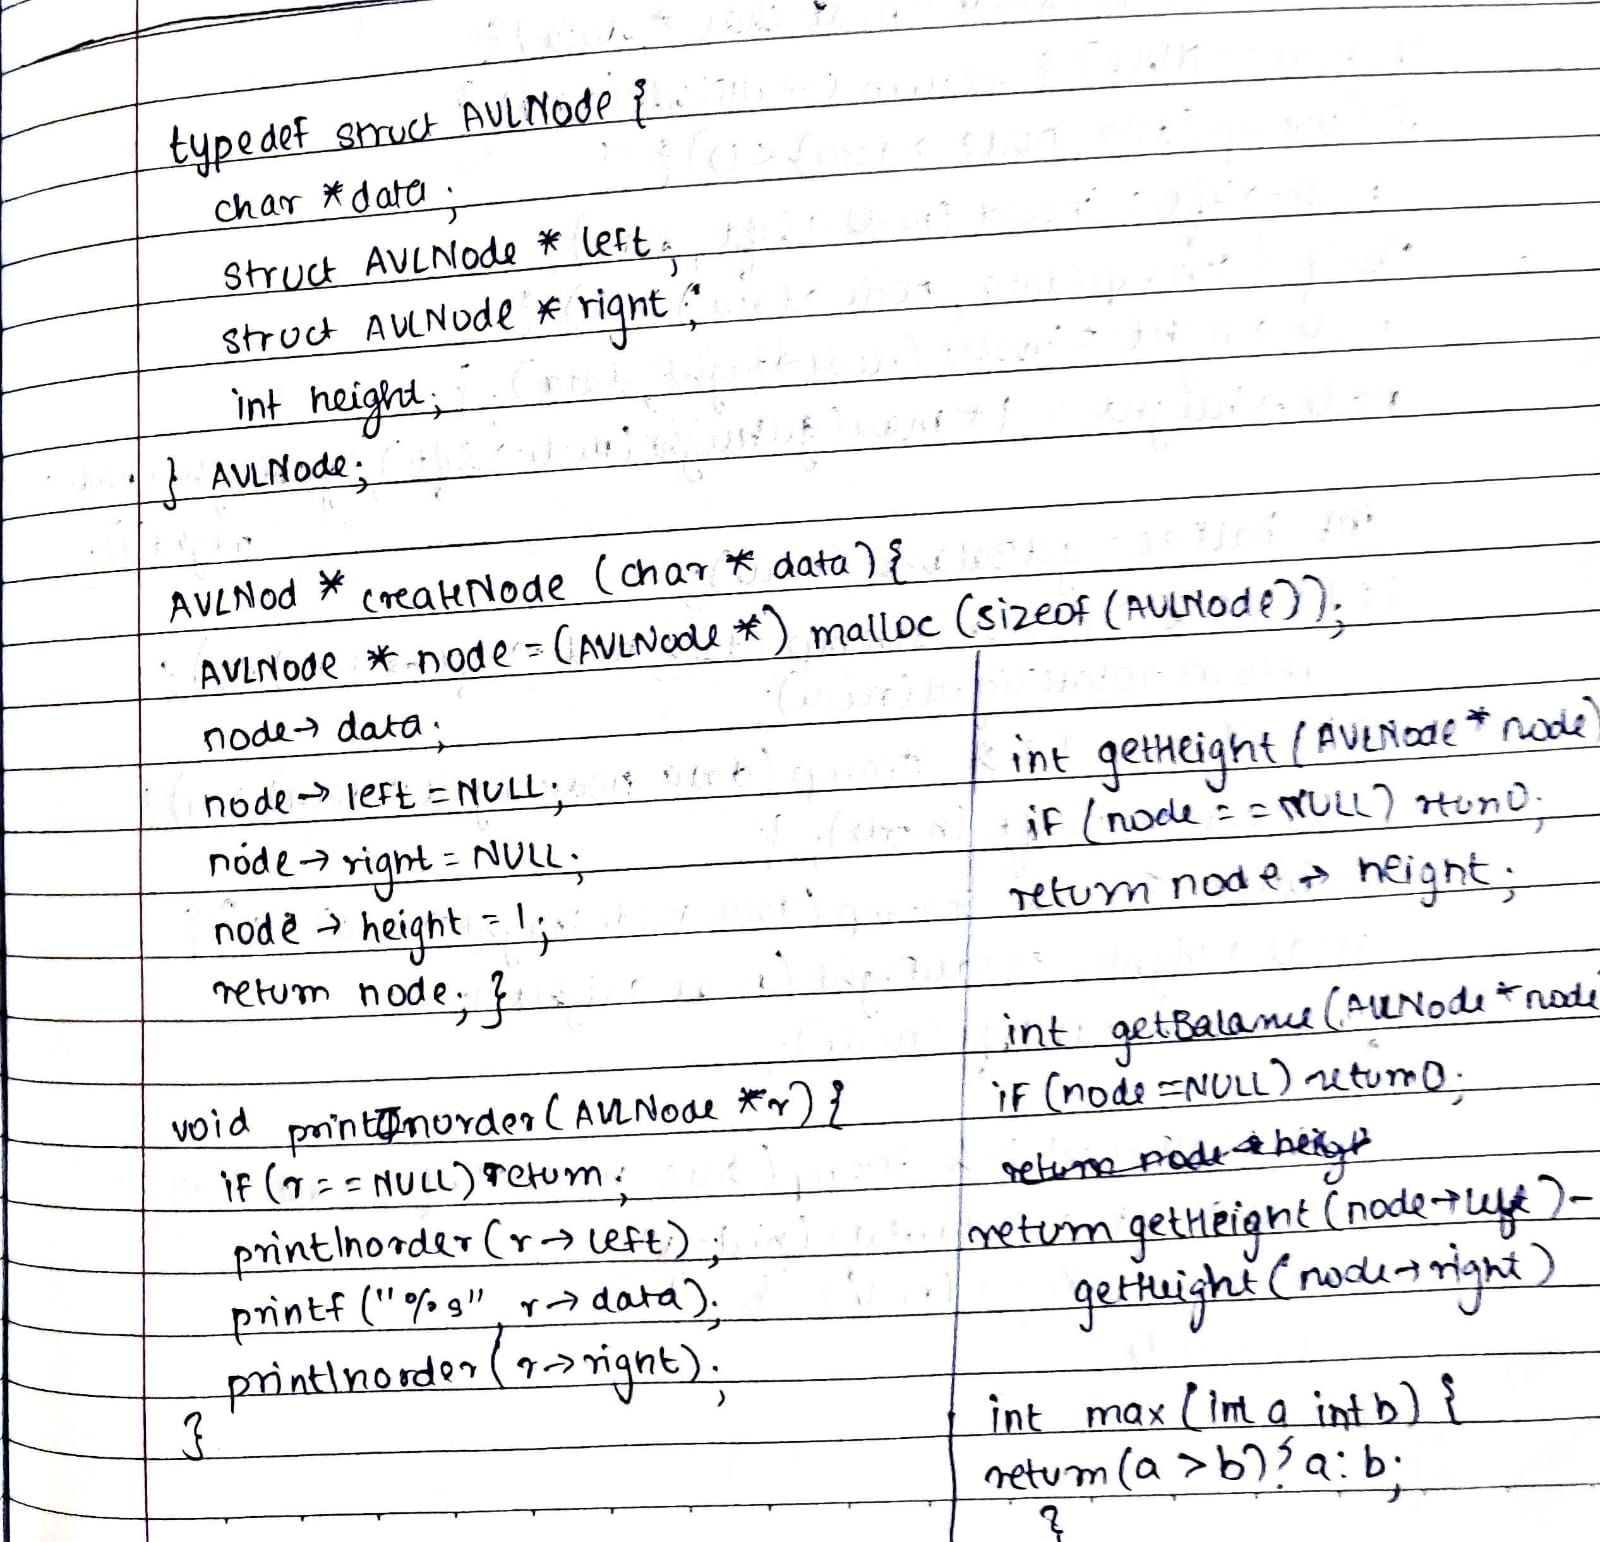 typedef struct AVLNode {
char *data;
struct AVLNode * left;
struct AVLNode * right;
int height;
} AVLNode;
AVLNod * createNode (char * data) {
AVLNode * node = (AVLNode *) malloc (sizeof (AVLNode));
node → data;
node → left = NULL;
node → right = NULL;
node → height = 1;
return node; }
void printInorder (AVLNode *r) {
if (r == NULL) return;
printInorder (r → left);
printf ("%s", r → data);
printInorder (r → right);
}
int getHeight (AVLNode * node)
if (node == NULL) retun 0;
return node → height;
int getBalance (AVLNode * node
if (node = NULL) return 0;
return node → heigt
return getHeight (node → left) -
getHeight (node → right)
int max (int a int b) {
return (a > b) ? a : b;
}